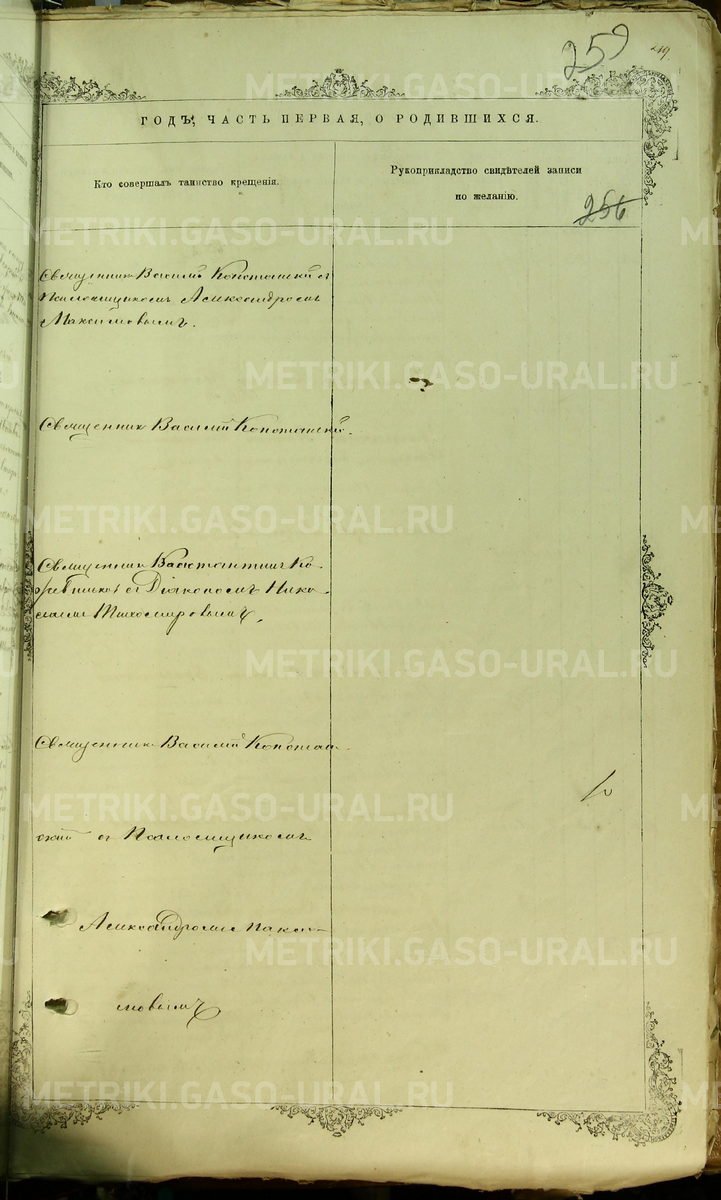 259
249.
ГОДЪ, ЧАСТЬ ПЕРВАЯ, О РОДИВШИХСЯ.
Кто совершалъ таинство крещенія.
Рукоприкладство свидѣтелей записи
по желанію.
256
Священникъ Василій Конотопскій съ
Псаломщикомъ Александромъ
Максимовымъ.
Священникъ Василій Конотопскій.
Священникъ Константинъ Ко-
съ Діакономъ Нико-
лаемъ Тихомировымъ,
Священникъ Василій Конотоп-
скій съ Псаломщикомъ
Александромъ Макси-
мовымъ
METRIKI.GASO-URAL.RU